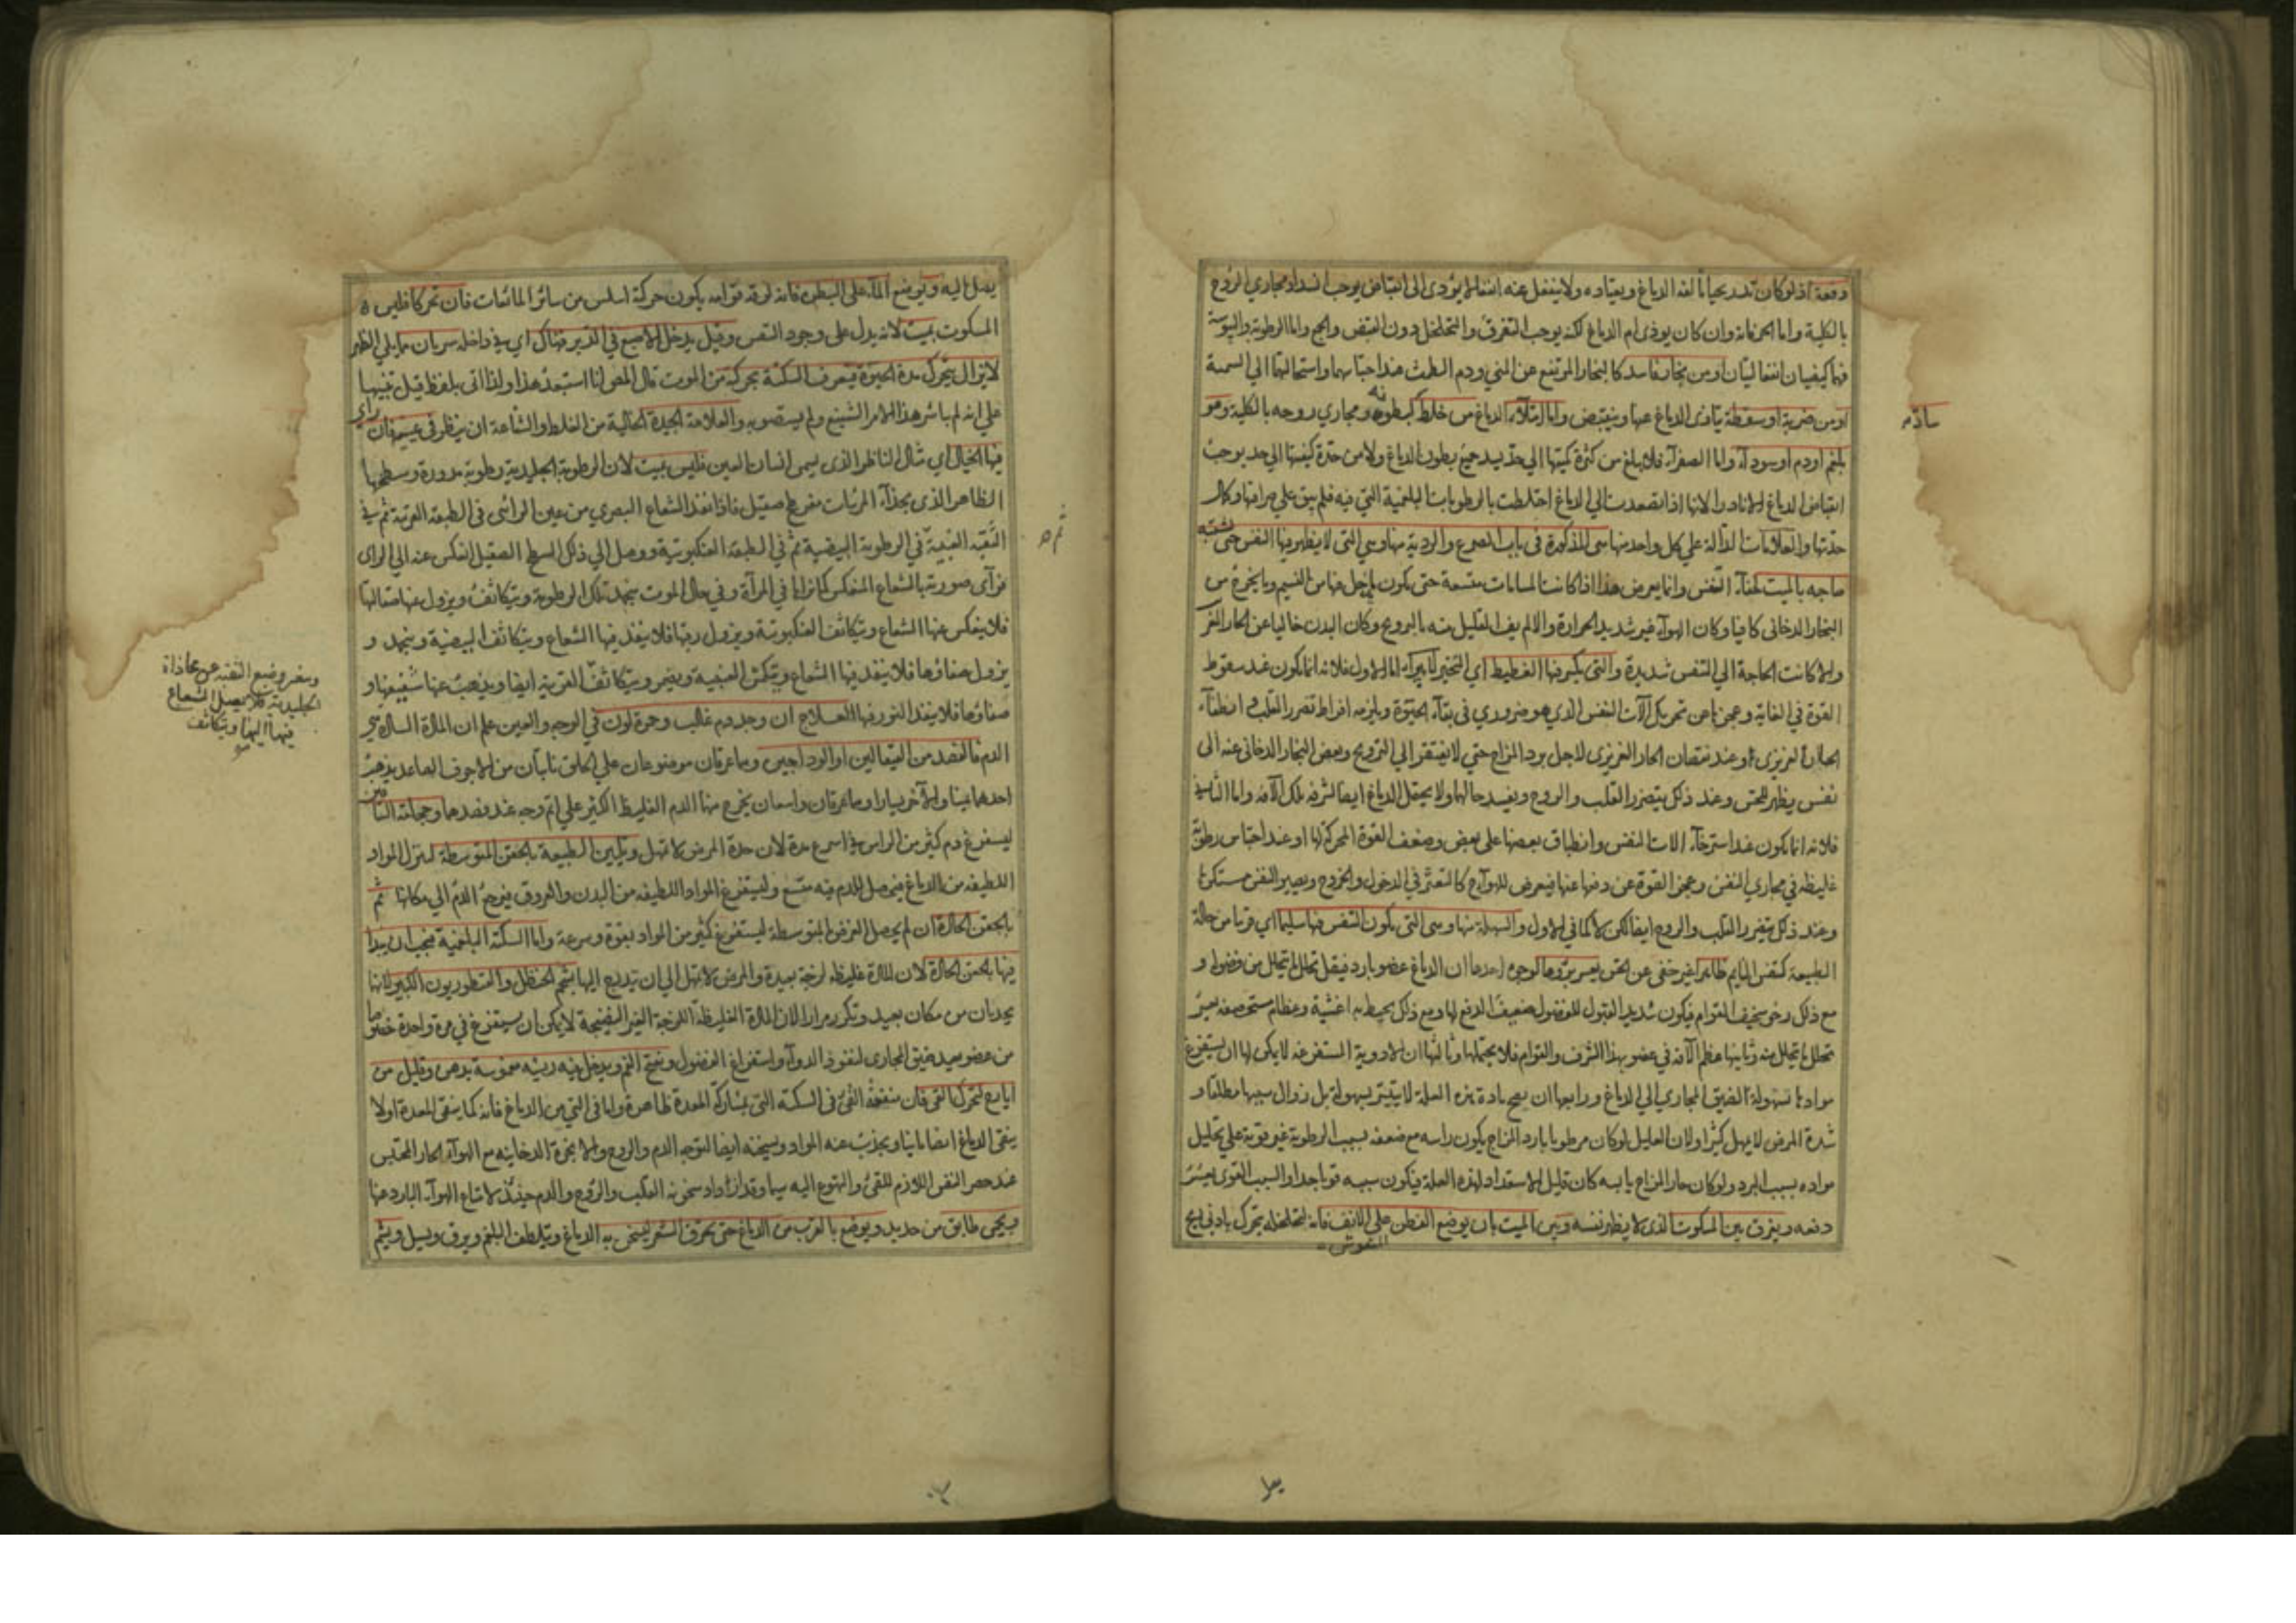 دفعة اذ لو كان تدريجيا الفه الدماغ ويعتاده ولا ينفعل عنه انفعالا يؤدى الى انقباض يوجب انسداد مجاري الروح
بالكلية واما الحر فانه وان كان يوذى ام الدماغ لكنه يوجب التفرق والتخلخل دون القبض والجمع واما الرطوبة واليبوسة
فهما كيفيتان انفعاليتان او من بخار فاسد كالبخار المرتفع عن المني ودم الطمث عند احتباسهما واستحالتهما الي السمية
او من ضربة او سقطة يتاذى الدماغ عنها وينقبض واما لامتلاء الدماغ من خلط كبطونه ومجاري روحه بالكلية وهو
ساد
بلغم او دم او سوداء واما الصفراء فلا يبلغ من كثرة كميتها الي حد يسد جميع بطون الدماغ ولا من حدة كيفيتها الي حد يوجب
انقباض الدماغ الا نادرا لانها اذا تصعدت الي الدماغ اختلطت بالرطوبات البلغمية التي فيه فلم يبق علي صرافتها وكمال
حدتها والعلامات الدالة علي كل واحد منها هي المذكورة في باب الصرع والردية منها وهي التي لا يظهر فيها النفس حتى يشتبه
صاحبه بالميت لخفاء النفس وانما يعرض هذا اذا كانت المسامات متسعة حتى يكون ما يدخل فيها من النسيم وما يخرج من
البخار الدخانى كافيا وكان الهواء غير شديد الحرارة والا لم يف القليل منه بالترويح وكان البدن خاليا عن الحار الغريزي
والا كانت الحاجة الي التنفس شديدة والتي يكثر فيها الغطيط اي النخير اما الاول فلانه انما يكون عند سقوط
القوة في الغاية وعجزها عن تحريك آلات النفس الذي هو ضروري في بقاء الحيوة ويلزمه افراط تضرر القلب وانطفاء
الحار الغريزى او عند نقصان الحار الغريزى لاجل برد المزاج حتي لا يفتقر الي الترويح ونفض البخار الدخانى عنه الى
نفس يظهر للحس وعند ذلك يتضرر القلب والروح ويفسد حالهما ولا يحتمل الدماغ ايضا لشرفه تلك الآفة واما الثاني
فلانه انما يكون عند استرخاء الات النفس وانطباق بعضها على بعض وضعف القوة المحركة لها او عند احتباس رطوبة
غليظة في مجاري النفس وعجز القوة عن دفعها عنها فيعرض للهواء كالتعثر في الدخول والخروج ويصير النفس مستكرها
وعند ذلك يتضرر القلب والروح ايضا لكن لا كما في الاول والسهلة منها وهي التي يكون النفس فيها سليما اي قريبا من حالة
الطبيعة كنفس النايم ظاهرا غير خفى عن الحس يعسر برؤها لوجوه احدها ان الدماغ عضو بارد فيقل تحلل ما يتحلل من فضوله و
مع ذلك رخو سخيف القوام فيكون شديد القبول للفضول ضعيف الدفع لها ومع ذلك يحيط به اغشية وعظام مستحصفة يعسر
تحلل ما يتحلل منه وثانيها عظم الآفة في عضو بهذا الشرف والقوام فلا يحتملها وثالثها ان الادوية المستفرغة لا يمكن لها ان يستفرغ
موادها بسهولة لضيق المجاري الي الدماغ ورابعها ان مادة هذه العلة لا يتيسر بسهولة قبل زوال سببها مطلقا و
شدة المرض لا يمهل كثيرا ولان العليل لو كان مرطوبا بارد المزاج يكون راسه مع ضعفه بسبب الرطوبة غير قوية علي تحليل
مواده بسبب البرد ولو كان حار المزاج يابسه كان قليل الاستعداد لهذه العلة فيكون سببه قويا جدا والسبب القوي يعسر
دفعه ويفرق بين المسكوت الذى لا يظهر نفسه وبين الميت بان يوضع القطن علي الانف فانه لتخلخله يتحرك بادنى ريح
المنفوش
يصل اليه ويوضع الماء على البطن فانه لرقة قوامه يكون حركة اسلس من سائر المائعات فان تحركا فليس
المسكوت بميت لانه يدل على وجود التنفس وقيل يدخل الاصبع في الدبر فهناك اي في داخله شريان مما يلي الظهر
لا يزال يتحرك مدة الحيوة فيعرف السكتة بحركته من الموت قال المص انا استبعد هذا ولذا اتى بلفظ قيل تنبيها
علي انه لم يباشر هذا الامر الشنيع ولم يستصوبه والعلامة الجيدة الخالية من الغلط والشناعة ان ينظر في عينه فان رأى
فيها الخيال اي تمثال الناظر الذى يسمى انسان العين فليس بميت لان الرطوبة الجليدية رطوبة مدورة وسطحها
الظاهر الذى بحذاء المرئيات مفرطح صقيل فاذا نفذ الشعاع البصري من عين الرائى فى الطبقة القرنية ثم في
الثقبة العنبية في الرطوبة البيضية ثم في الطبقة العنكبوتية ووصل الي ذلك السطح الصقيل انعكس عنه الي الراى
فرآى صورته بالشعاع المنعكس كما نراها في المرآة وفي حال الموت ينجمد تلك الرطوبة ويتكاثف ويزول عنها صقالتها
فلا ينعكس عنها الشعاع ويتكاثف العنكبوتية ويزول رقتها فلا ينفذ فيها الشعاع ويتكاثف البيضية وينجمد و
يزول صفاؤها فلا ينفذ فيها الشعاع ويتكمش العنبية ويتكاثف القرنية ايضا ويذهب عنها شفيفها و
صفاؤها فلا ينفذ النور فيها العلاج ان وجد دم غالب وحمرة لون في الوجه والعين علم ان المادة السادة هي
الدم فالفصد من القيفالين او الوداجين وهما عرقان موضوعان علي الحلق نابتان من الاجوف الصاعد يذهب
احدهما يمينا والآخر يسارا وهما عرقان واسعان يخرج منهما الدم الغليظ الكثير علي اتم وجه عند فصدهما وحجامة الساقين
ليستفرغ دم كثير من الراس في اسرع مدة لان حدة المرض لا تمهل وتليين الطبيعة بالحقن المتوسطة لينزل المواد
اللطيفة من الدماغ فيحصل للدم فيه متسع وليستفرغ المواد اللطيفة من البدن والعروق فينزح الدم الي مكانها ثم
بالحقن الحادة ان لم يحصل الغرض بالمتوسطة ليستفرغ كثير من المواد بقوة وسرعة واما السكتة البلغمية فيجب ان يبدا
فيها بالحقن الحادة لان المادة غليظة لزجة بعيدة والمرض لا يمهل الي ان يتدرج اليها بشحم الحنظل والقنطوريون الكبير لانهما
يجذبان من مكان بعيد وتكرر مرارا لان المادة الغليظة اللزجة الغير النضيجة لا يمكن ان يستفرغ في مرة واحدة خصوصا
من عضو بعيد ضيق المجاري لنفوذ الدواء واستفراغ الفضول ويفتح الفم ويدخل فيه ريشة مغموسة بدهن وقليل من
ايارج لتحرك القئ فان منفعة القئ في السكتة التي بمشاركة المعدة ظاهرة واما في التي من الدماغ فانه كما ينقى المعدة اولا
ينقى الدماغ ايضا ثانيا ويجذب عنه المواد ويسخنه ايضا لتوجه الدم والروح والابخرة الدخانية مع الهواء الحار المحتبس
عند حصر النفس اللازم للقئ والتهوع اليه سيما وقد ازداد سخونة القلب والروح والدم حينئذ لامتناع الهواء البارد عنها
ويحمى طابق من حديد ويوضع بالقرب من الدماغ حتى يحرق الشعر ليسخن به الدماغ ويتلطف البلغم ويرق ويسيل ويشم
وينفر وضع الثقبة عن محاذاة
الجليدية فلا يصل الشعاع
فيها اليها ويتكاثف